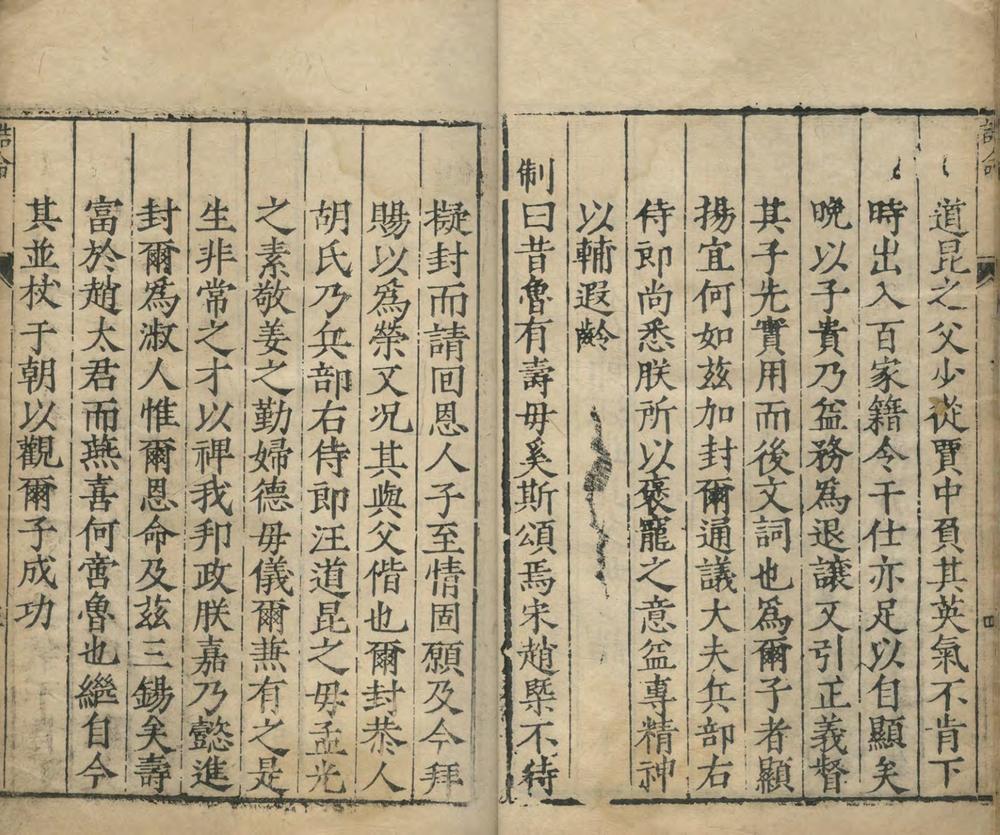 誥命
道昆之父少從賈中負其英氣不肯下
時出入百家籍令干仕亦足以自顯矣
晚以子貴乃益務為退讓又引正義督
其子先實用而後文詞也為爾子者顯
揚宜何如茲加封爾通議大夫兵部右
侍郎尚悉朕所以褒寵之意益專精神
以輔遐齡
制曰昔魯有壽毋奚斯頌焉宋趙槩不待
擬封而請囘恩人子至情固願及今拜
賜以為榮又况其與父偕也爾封恭人
胡氏乃兵部右侍郎汪道昆之毋孟光
之素敬姜之勤婦德毋儀爾兼有之是
生非常之才以裨我邦政朕嘉乃懿進
封爾為淑人惟爾恩命及茲三錫矣壽
富於趙太君而燕喜何啻魯也繼自今
其並杖于朝以觀爾子成功
誥命
四